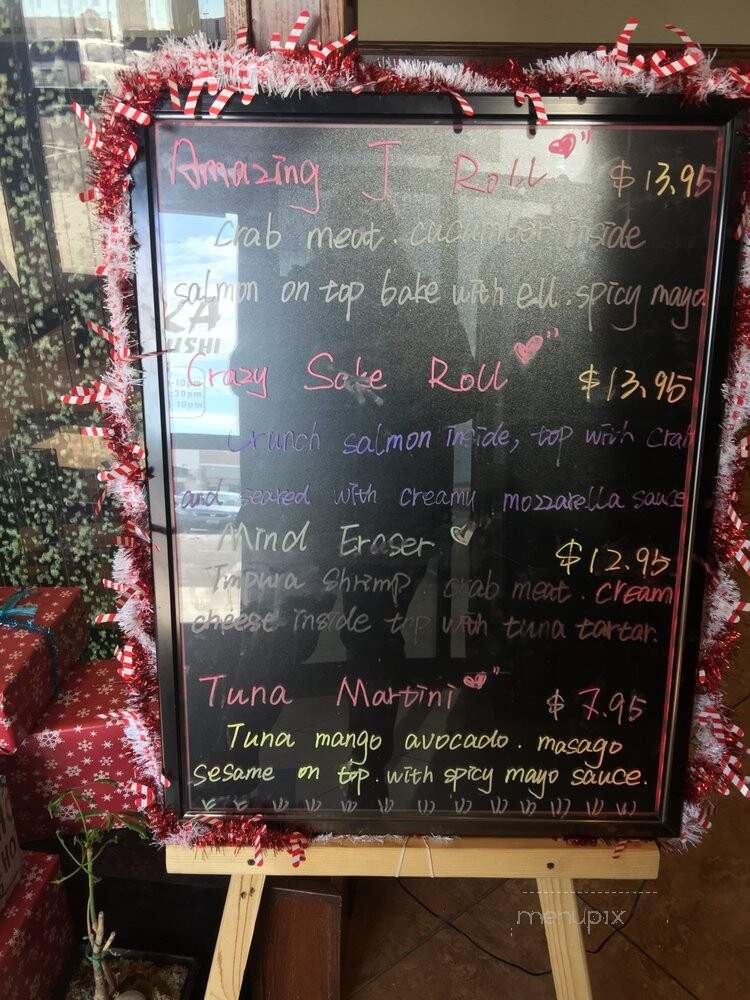 Amazing J Roll $13.95
Crab meat. cucumber inside
salmon on top bake with ell. spicy mayo
Crazy Sake Roll $13.95
Crunch salmon inside, top with crab
and seared with creamy mozzarella sauce
Mind Eraser $12.95
Tmpura shrimp. crab meat. cream
cheese inside top with tuna tartar.
Tuna Martini $7.95
Tuna mango avocado. masago
sesame on top. with spicy mayo sauce.
KA
USHI
menupix